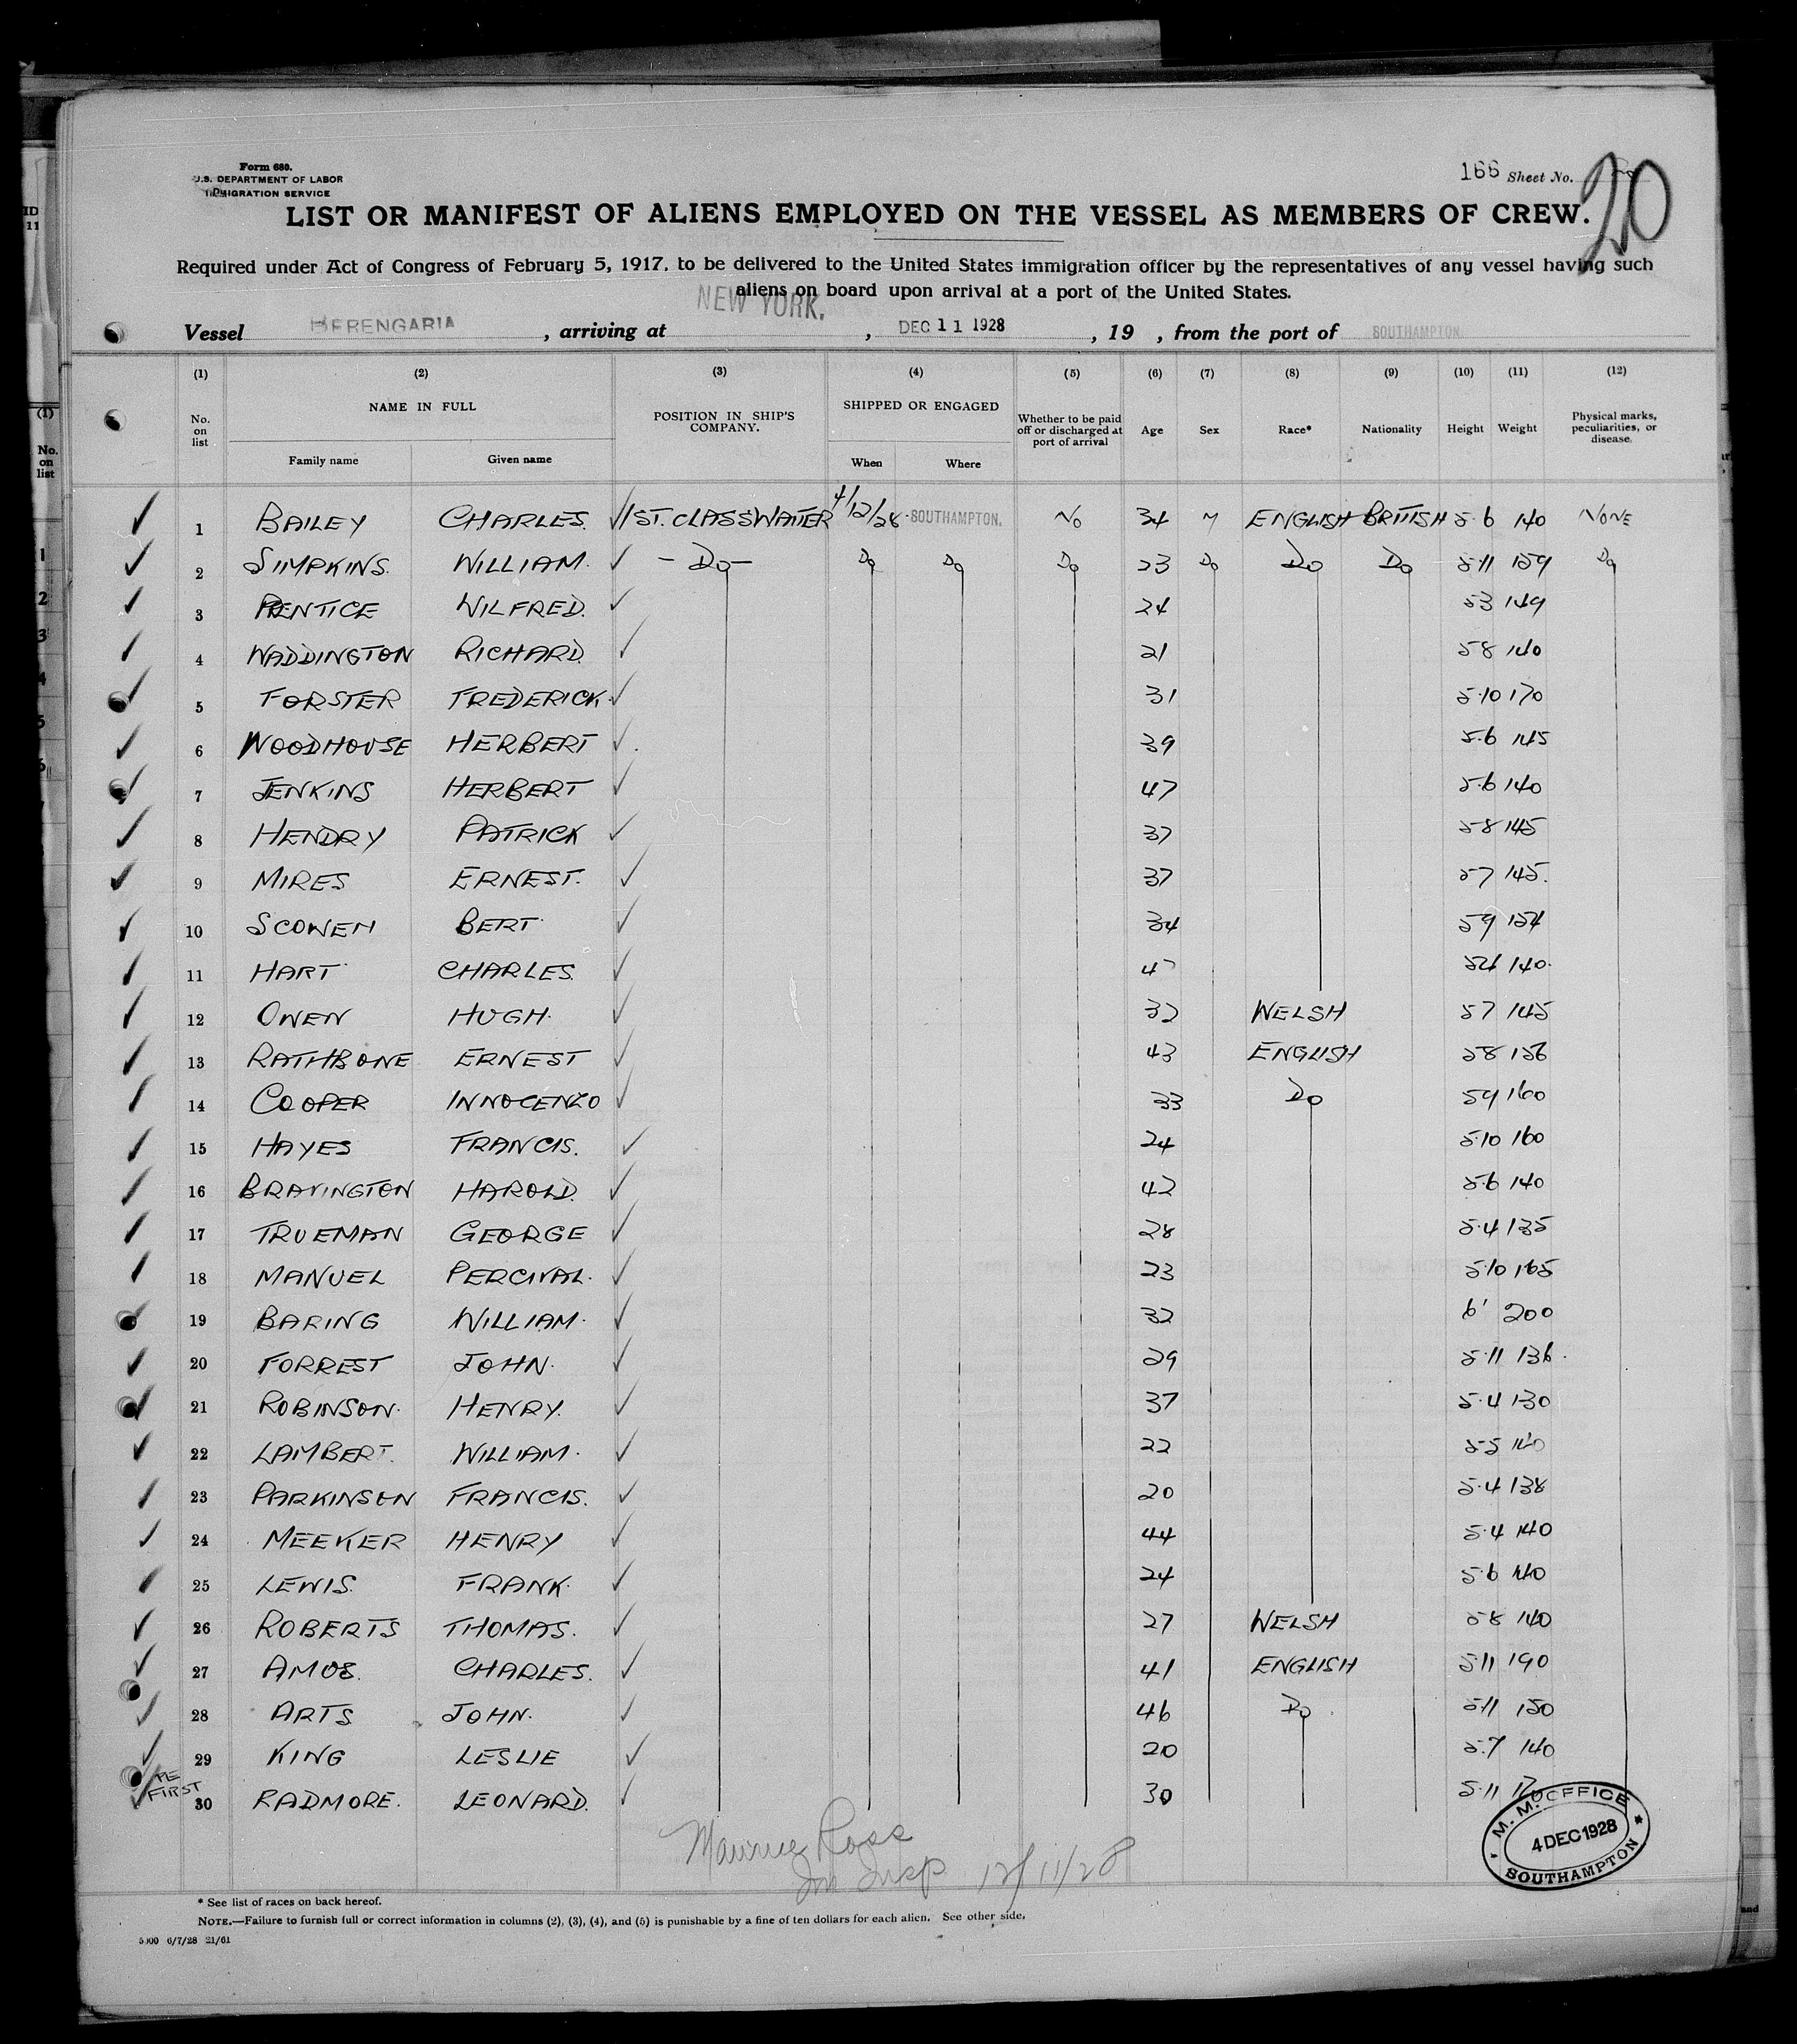 Form 680.
U.S. DEPARTMENT OF LABOR
IMMIGRATION SERVICE
166 Sheet No.
20
LIST OR MANIFEST OF ALIENS EMPLOYED ON THE VESSEL AS MEMBERS OF CREW.
Required under Act of Congress of February 5, 1917, to be delivered to the United States immigration officer by the representatives of any vessel having such
aliens on board upon arrival at a port of the United States.
Vessel BERENGARIA, arriving at NEW YORK., DEC 11 1928, 19 , from the port of SOUTHAMPTON.
(1) (2) (3) (4) (5) (6) (7) (8) (9) (10) (11) (12)
No. on list NAME IN FULL Family name Given name POSITION IN SHIP'S COMPANY. SHIPPED OR ENGAGED When Where Whether to be paid off or discharged at port of arrival Age Sex Race* Nationality Height Weight Physical marks, peculiarities, or disease.
1 BAILEY CHARLES. 1ST. CLASS WAITER 4/12/28 SOUTHAMPTON. No 34 M ENGLISH BRITISH 5.6 140 NONE
2 SIMPKINS. WILLIAM. - Do - Do Do Do 23 Do Do Do 5.11 159 Do
3 PRENTICE WILFRED. 24 5 3 149
4 WADDINGTON RICHARD. 21 5 8 140
5 FORSTER FREDERICK. 31 5.10 170
6 WOODHOUSE HERBERT 39 5.6 145
7 JENKINS HERBERT 47 5.6 140
8 HENDRY PATRICK 37 5 8 145
9 MIRES ERNEST. 37 5 7 145.
10 SCOWEN BERT. 34 5 9 154
11 HART CHARLES. 47 5 4 140.
12 OWEN HUGH. 32 WELSH 5 7 145
13 RATHBONE ERNEST 43 ENGLISH 5 8 156
14 COOPER INNOCENZO 33 Do 5 9 160
15 HAYES FRANCIS. 24 5.10 160
16 BRAVINGTON HAROLD. 42 5.6 140
17 TRUEMAN GEORGE 28 5.4 135
18 MANUEL PERCIVAL. 23 5.10 165
19 BARING WILLIAM. 32 6' 200
20 FORREST JOHN. 29 5.11 136.
21 ROBINSON. HENRY. 37 5.4 130
22 LAMBERT. WILLIAM. 22 5-5 140
23 PARKINSON FRANCIS. 20 5.4 138
24 MEEKER HENRY 44 5.4 140
25 LEWIS. FRANK. 24 5.6 140
26 ROBERTS THOMAS. 27 WELSH 5.8 140
27 AMOS. CHARLES. 41 ENGLISH 5.11 190
28 ARTS JOHN. 46 Do 5.11 150
29 KING LESLIE 20 5.7 140
FIRST
30 RADMORE. LEONARD. 30 5.11
M. M. OFFICE
4 DEC 1928
SOUTHAMPTON
Maurice Ross
Im Insp 12/11/28
* See list of races on back hereof.
NOTE.—Failure to furnish full or correct information in columns (2), (3), (4), and (5) is punishable by a fine of ten dollars for each alien. See other side.
5000 6/7/28 21/61